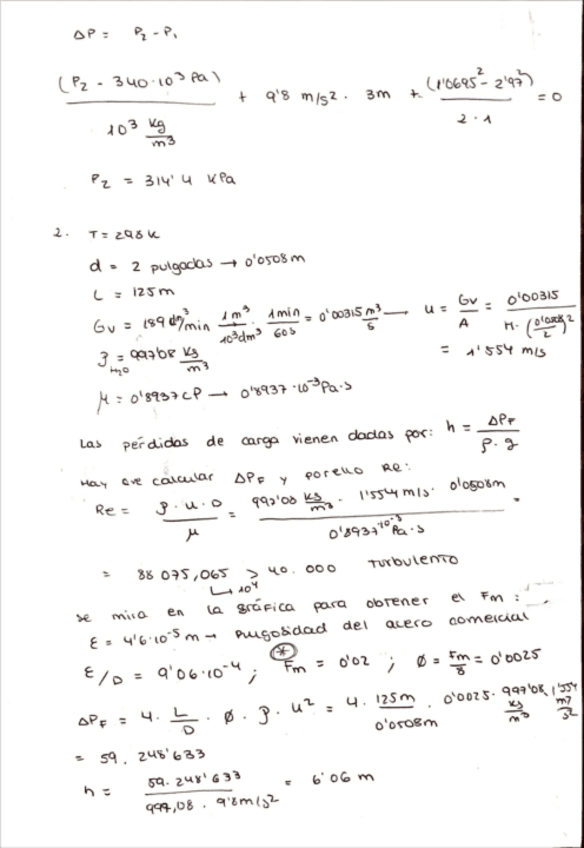 ΔP = P₂ - P₁
(P₂ - 340·10³ Pa) / 10³ kg/m³ + 9'8 m/s² · 3m + (1'0695² - 2'97²) / 2·1 = 0
P₂ = 314'4 kPa
2. T = 298 K
d = 2 pulgadas → 0'0508 m
L = 125 m
Gv = 189 dm³/min · 1 m³/10³dm³ · 1min/60s = 0'00315 m³/s → u = Gv/A = 0'00315 / π·(0'0508/2)²
= 1'554 m/s
ρ H₂O = 997'08 kg/m³
μ = 0'8937 cP → 0'8937·10⁻³ Pa·s
Las pérdidas de carga vienen dadas por: h = ΔPF / ρ·g
Hay que calcular ΔPF y por ello Re:
Re = ρ·u·D / μ = 997'08 kg/m³ · 1'554 m/s · 0'0508m / 0'8937·10⁻³ Pa·s =
= 88 075,065 > 40.000 Turbulento
↳ 10⁴
se mira en la gráfica para obtener el Fm:
ε = 4'6·10⁻⁵ m → Rugosidad del acero comercial
ε/D = 9'06·10⁻⁴ ; (*) Fm = 0'02 ; Ø = Fm/8 = 0'0025
ΔPF = 4 · L/D · Ø · ρ · u² = 4 · 125m/0'0508m · 0'0025 · 997'08 kg/m³ · 1'554 m²/s²
= 59.248'633
h = 59.248'633 / 997,08 · 9'8m/s² = 6'06 m